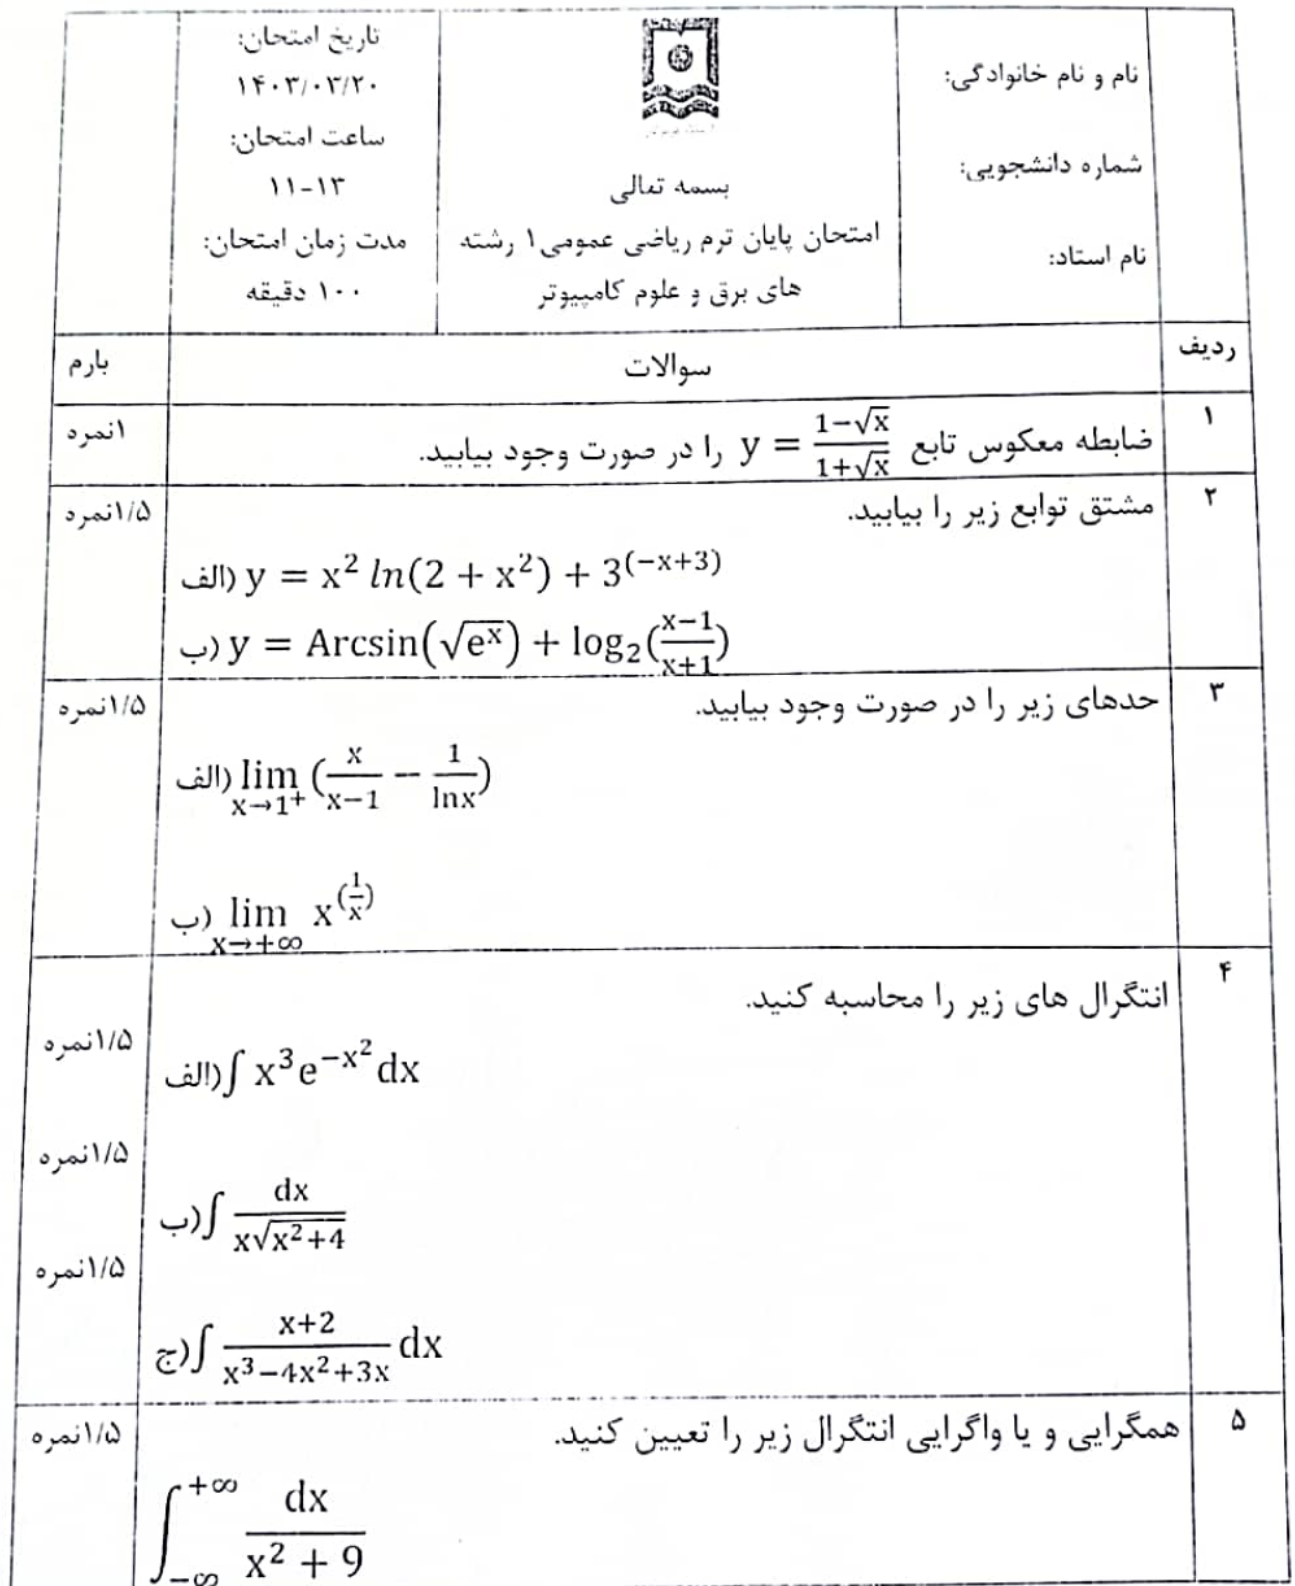 نام و نام خانوادگی:
شماره دانشجویی:
نام استاد:
بسمه تعالی
امتحان پایان ترم ریاضی عمومی۱ رشته
های برق و علوم کامپیوتر
تاریخ امتحان:
۱۴۰۳/۰۳/۲۰
ساعت امتحان:
۱۱-۱۳
مدت زمان امتحان:
۱۰۰ دقیقه
ردیف سوالات بارم
۱ ضابطه معکوس تابع y = (1-√x)/(1+√x) را در صورت وجود بیابید. ۱نمره
۲ مشتق توابع زیر را بیابید. ۱/۵نمره
الف) y = x² ln(2 + x²) + 3^(-x+3)
ب) y = Arcsin(√e^x) + log₂((x-1)/(x+1))
۳ حدهای زیر را در صورت وجود بیابید. ۱/۵نمره
الف) lim x→1⁺ (x/(x-1) - 1/lnx)
ب) lim x→+∞ x^(1/x)
۴ انتگرال های زیر را محاسبه کنید.
الف) ∫ x³e^(-x²)dx ۱/۵نمره
ب) ∫ dx/(x√(x²+4)) ۱/۵نمره
ج) ∫ (x+2)/(x³-4x²+3x) dx ۱/۵نمره
۵ همگرایی و یا واگرایی انتگرال زیر را تعیین کنید. ۱/۵نمره
∫_{-∞}^{+∞} dx/(x² + 9)